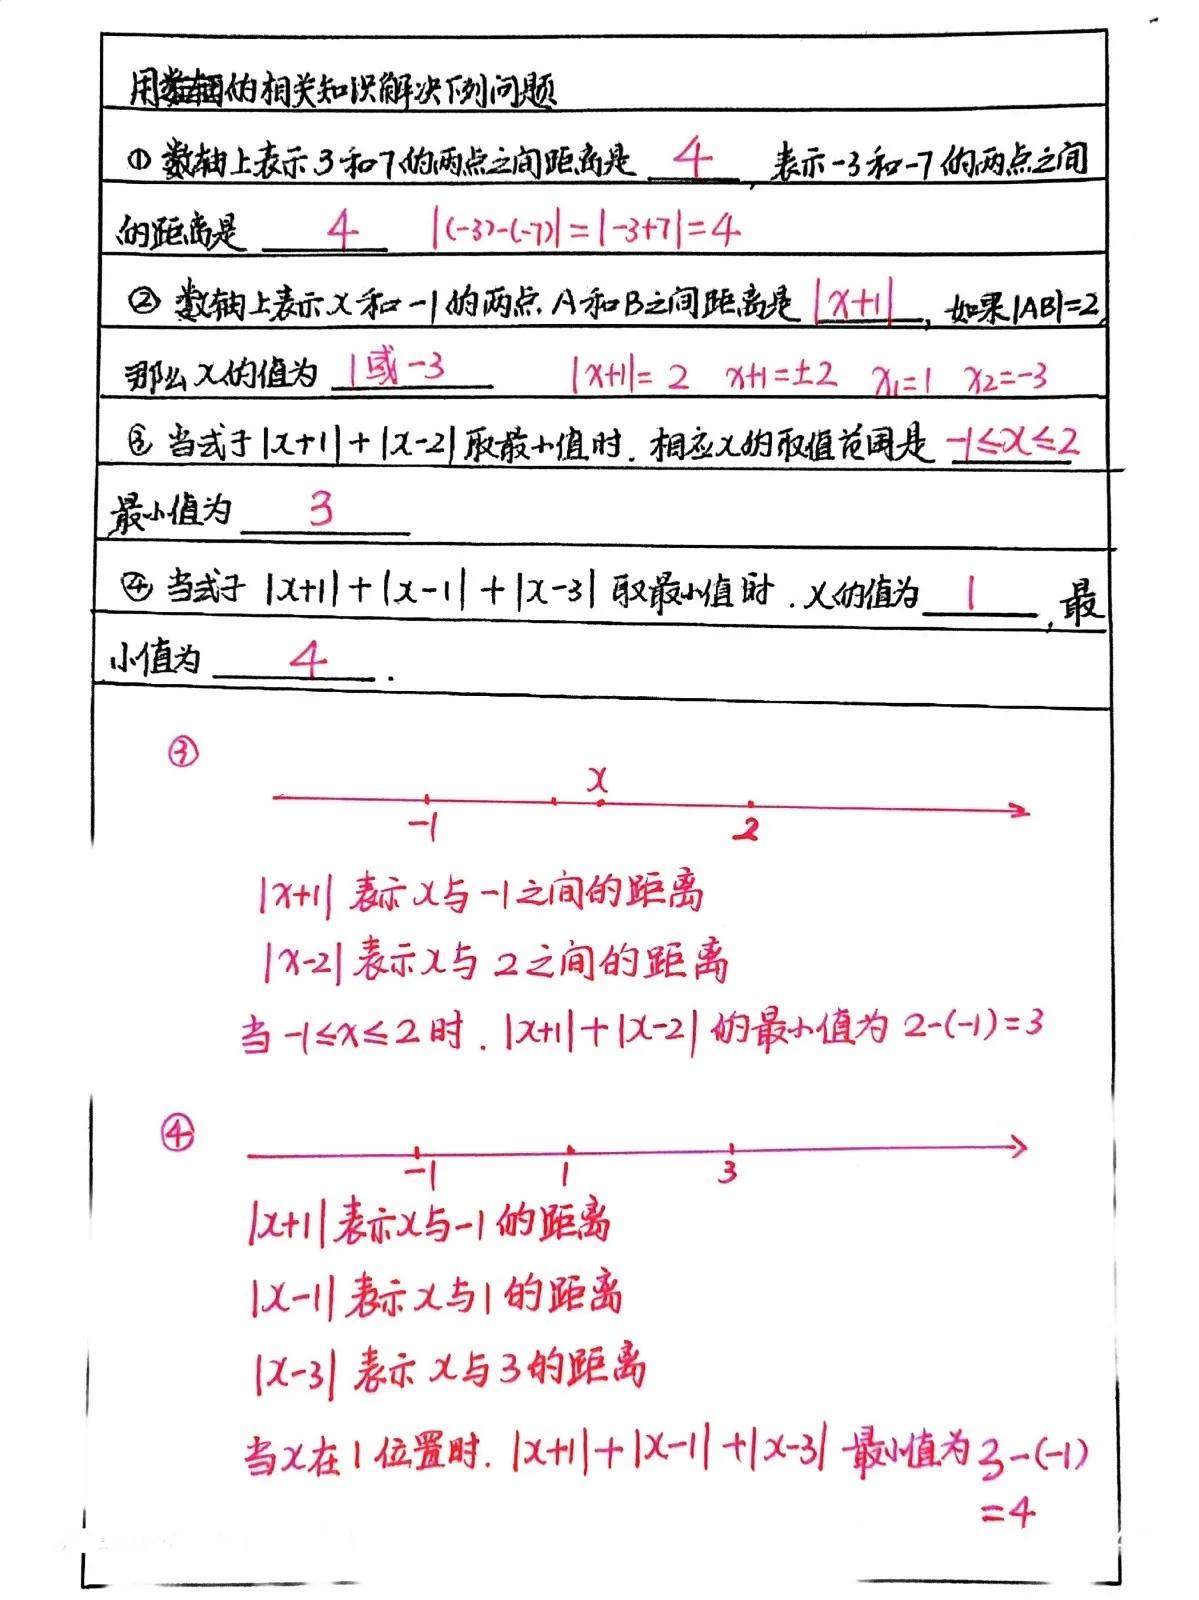 用数轴的相关知识解决下列问题
① 数轴上表示 3 和 7 的两点之间距离是 4 , 表示 -3 和 -7 的两点之间
的距离是 4 |(-3)-(-7)|=|-3+7|=4
② 数轴上表示 x 和 -1 的两点 A 和 B 之间距离是 |x+1| , 如果|AB|=2,
那么 x 的值为 1或-3 |x+1|=2 x+1=±2 x₁=1 x₂=-3
③ 当式子 |x+1|+|x-2| 取最小值时. 相应x的取值范围是 -1≤x≤2
最小值为 3
④ 当式子 |x+1|+|x-1|+|x-3| 取最小值时. x的值为 1 , 最
小值为 4 .
③
x
-1 2
|x+1| 表示 x 与 -1 之间的距离
|x-2| 表示 x 与 2 之间的距离
当 -1≤x≤2 时. |x+1|+|x-2| 的最小值为 2-(-1)=3
④
-1 1 3
|x+1| 表示x与-1 的距离
|x-1| 表示 x与1 的距离
|x-3| 表示 x与3的距离
当x在1位置时. |x+1|+|x-1|+|x-3| 最小值为 3-(-1)
=4